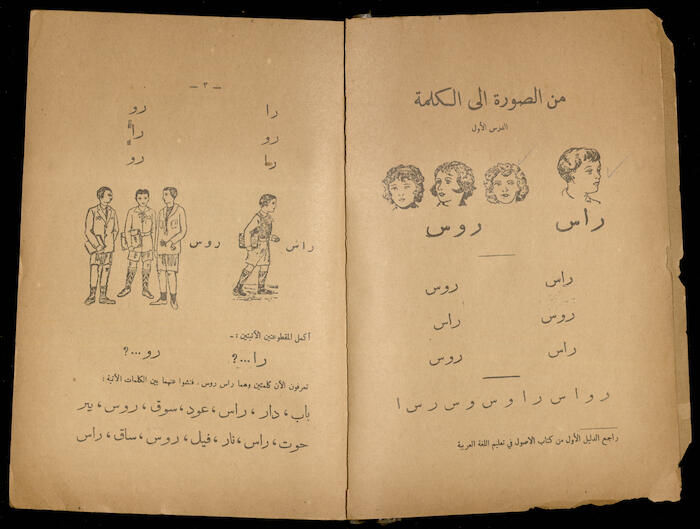 من الصورة الى الكلمة
الدرس الأول
راس روس
راس روس
روس راس
راس روس
ر و ا س ر ا و س و س ر س ا
راجع الدليل الأول من كتاب الاصول في تعليم اللغة العربية
— ٣ —
را رو
رو را
را رو
راس روس
أكمل المقطوعتين الآتيتين :—
را...؟ رو...؟
تعرفون الآن كلمتين وهما راس روس . فتشوا عنهما بين الكلمات الآتية :
باب ، دار ، راس ، عود ، سوق ، روس ، بير
حوت ، راس ، نار ، فيل ، روس ، ساق ، راس